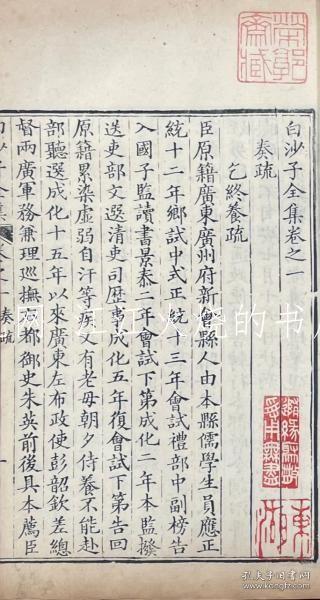 白沙子全集卷之一
奏疏
乞終養疏
臣原籍廣東廣州府新會縣人由本縣儒學生員應正
統十二年鄉試中式正統十三年會試禮部中副榜告
入國子監讀書景泰二年會試下第成化二年本監撥
送吏部文選清吏司歷事成化五年復會試下第告回
原籍累染虛弱自汗等疾又有老母朝夕侍養不能赴
部聽選成化十五年以來廣東左布政使彭韶欽差總
督兩廣軍務兼理巡撫都御史朱英前後具本薦臣
白沙子全集 卷之一 奏疏 一
孔夫子旧书网